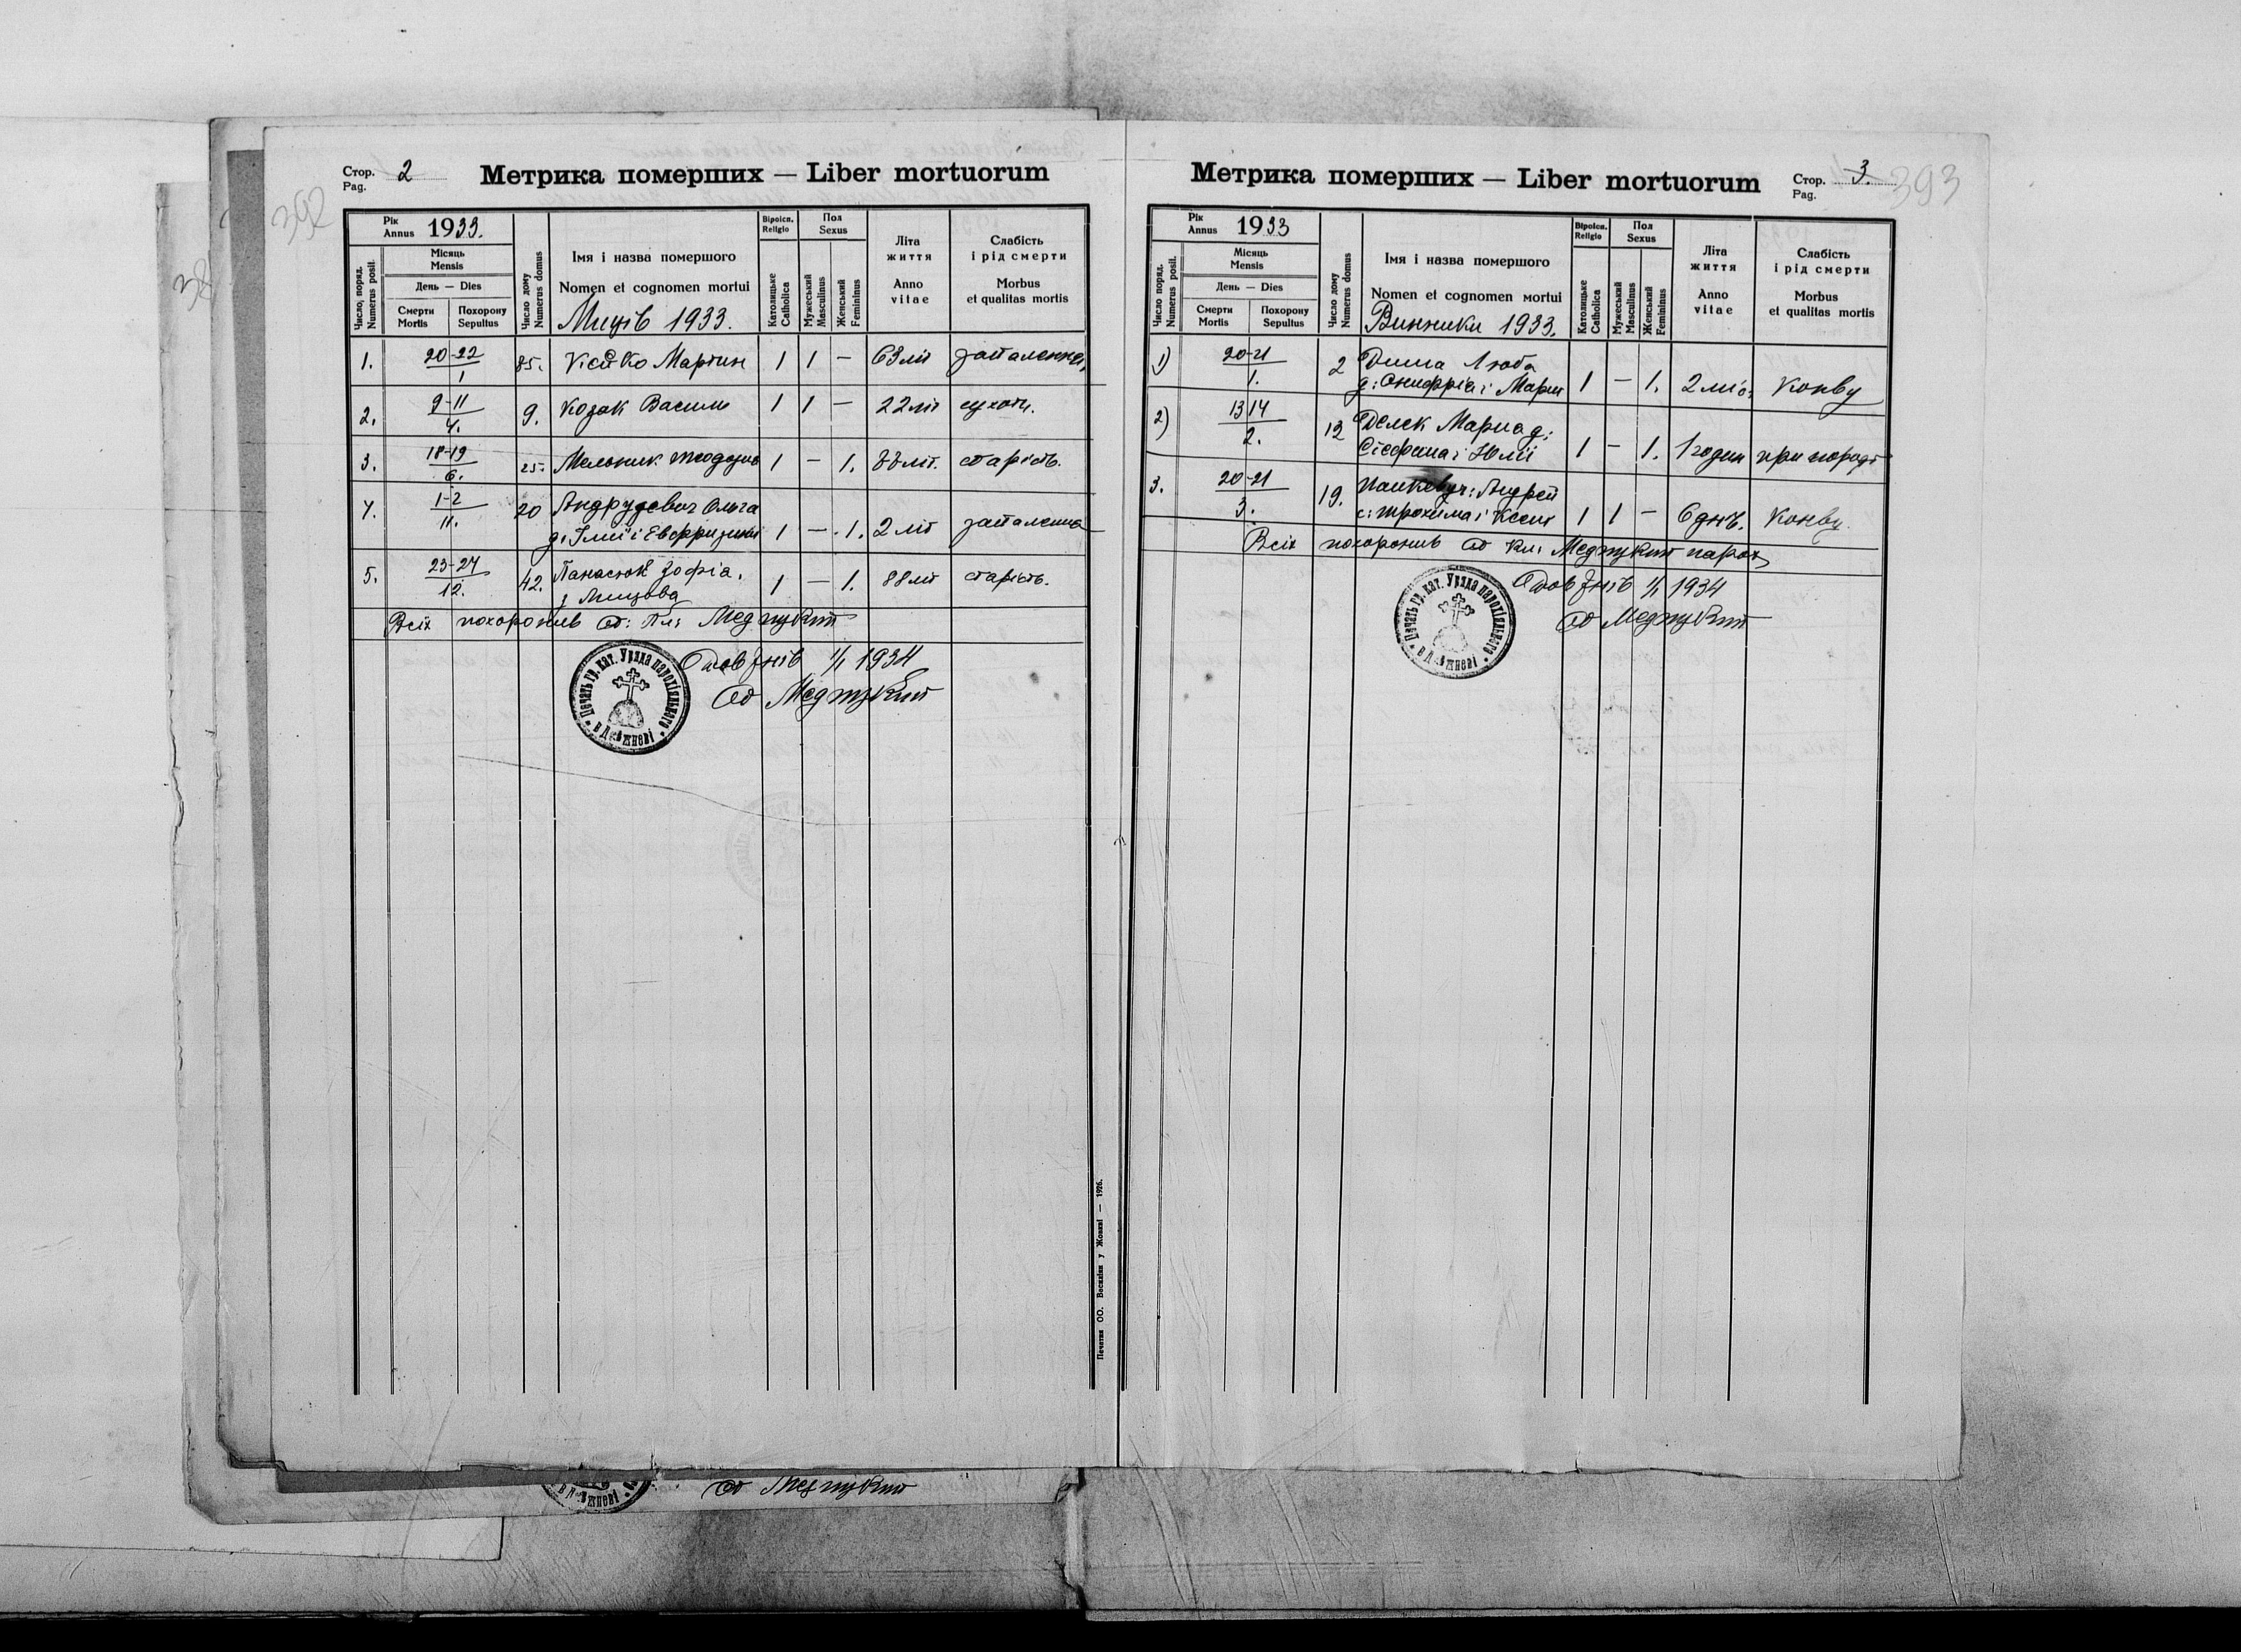 Стор. Pag. 2
Метрика померших — Liber mortuorum
392
Рік Annus 1933.
Місяць Mensis
День — Dies
Число, поряд. Numerus posit.
Смерти Mortis
Похорону Sepultus
Число дому Numerus domus
Імя і назва помершого
Nomen et cognomen mortui
Миців 1933.
Віроісп. Religio
Католицьке Catholica
Пол Sexus
Мужеський Masculinus
Женський Femininus
Літа життя
Anno vitae
Слабість і рід смерти
Morbus et qualitas mortis
1. 20-22/1 85. Мартин 1 1 — 63 літ запалення
2. 9-11/4. 9. Козак Василь 1 1 — 22 літ сухоти.
3. 18-19/6. 25. Мельник Теодозия 1 — 1. літ. старість.
4. 1-2/11. 20 Андрусевич Ольга
д: Ілиї і 1 — 1. 2 літ запалення
5. 23-24/12. 42. Панасюк Зофія,
з Мицова 1 — 1. 88 літ старість.
Всіх похоронив
1/1 1934
Печать гр. кат. Уряда парохіяльного
Печатня ОО. Василіян у Жовкві — 1926.
Метрика померших — Liber mortuorum
Стор. Pag. 3.
393
Рік Annus 1933
Місяць Mensis
День — Dies
Число, поряд. Numerus posit.
Смерти Mortis
Похорону Sepultus
Число дому Numerus domus
Імя і назва помершого
Nomen et cognomen mortui
Винники 1933.
Віроісп. Religio
Католицьке Catholica
Пол Sexus
Мужеський Masculinus
Женський Femininus
Літа життя
Anno vitae
Слабість і рід смерти
Morbus et qualitas mortis
1) 20-21/1. 2 Люба
д: Онифрія і Марии 1 — 1. конву
2) 13 14/2. 12 Мария д:
Стефана і Юлії 1 — 1. 1 годин при породі
3. 20-21/3. 19. Андрей
с: Трохима і 1 1 — 6 днів. конву.
Всіх похоронив парох
1/1 1934
Печать гр. кат. Уряда парохіяльного